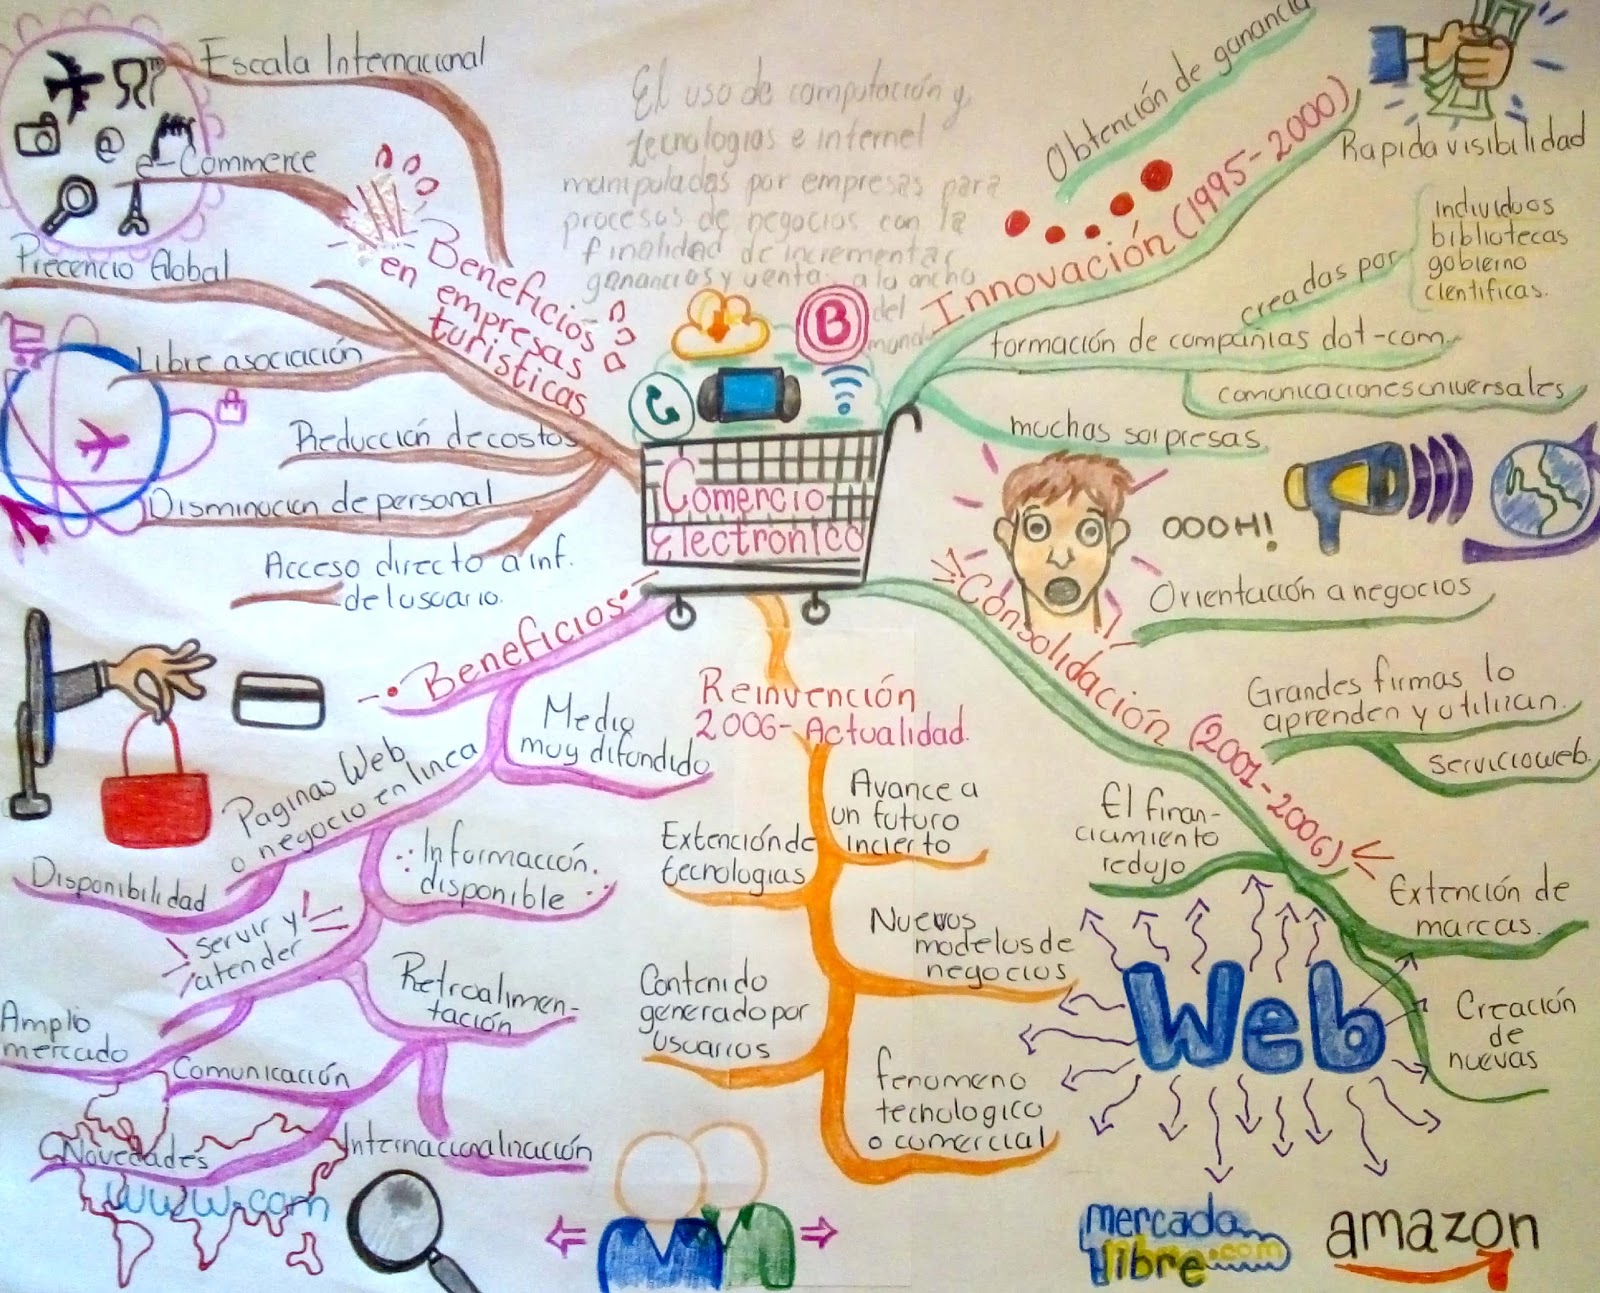 Comercio
Electronico
El uso de computación y
tecnologias e internet
manipuladas por empresas para
procesos de negocios con la
finalidad de incrementar
ganancias y ventas a lo ancho
del
mundo
Innovación (1995-2000)
Obtención de ganancia
Rapida visibilidad
creadas por
individuos
bibliotecas
gobierno
cientificas.
formación de compañias dot-com.
comunicaciones universales
muchas sorpresas.
OOOH!
Consolidación (2001-2006)
Orientación a negocios
Grandes firmas lo
aprenden y utilizan.
servicio web.
El finan-
ciamiento
redujo
Extención de
marcas.
Creación
de
nuevas
Web
mercado
libre.com
amazon
Reinvención
2006-Actualidad.
Avance a
un futuro
incierto
Extención de
tecnologias
Nuevos
modelos de
negocios
Contenido
generado por
usuarios
fenomeno
tecnologico
o comercial
Beneficios
Medio
muy difundido
Paginas Web
o negocio en linea
Disponibilidad
Información
disponible
servir y
atender
Retroalimen-
tación
Amplio
mercado
Comunicación
Internacionalización
Novedades
www.com
Beneficios
en empresas
turisticas
Escala Internacional
@
e-Commerce
Precencio Global
Libre asociación
Reducción de costos
Disminucion de personal
Acceso directo a inf.
del usuario.
B